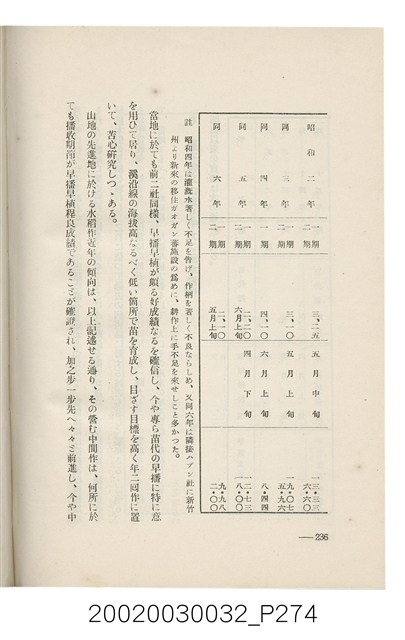 昭和二年 一期 三、二五 五月中旬 一三・三三
二期 六・六〇
同 三年 一期 三、一〇 五月上旬 九・〇六
二期 五・九七
同 四年 一期 四、一〇 六月上旬 八・四四
同 五年 一期 二、二〇 四月下旬 一二・七三
二期 六月上旬 八・〇〇
同 六年 一期 二、一〇 九・九八
二期 五月上旬 二・〇〇
註 昭和四年は灌漑水著しく不足を告げ、作柄を著しく不良ならしめ、又同六年は隣接ハブン社に新竹
州より新來の移住ガオガン蕃施設の爲めに、耕作上に手不足を來せしこと多かつた。
當地に於ても前二社同樣、早播早植が頗る好成績なるを確信し、今や專ら苗代の早播に特に意
を用ひて居り、溪沿線の海拔高なるべく低い箇所で苗を育成し、目ざす目標を高く年二囘作に置
いて、苦心硏究しつゝある。
山地の先進地に於ける水稻作近年の傾向は、以上記述せる通り、その營む中間作は、何所に於
ても播收期治が早播早植程良成績であることが確證され、加之步一步先へ々々と前進し、今や中
—236
20020030032_P274